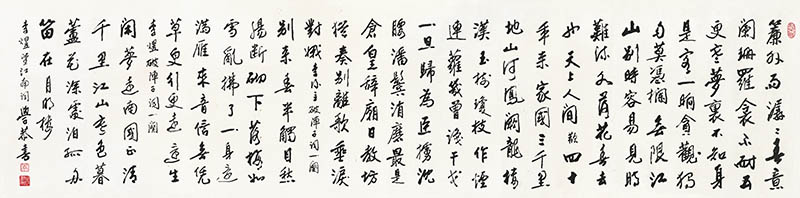 簾外雨潺潺春意
闌珊羅衾不耐五
更寒夢裏不知身
是客一晌貪觀獨
自莫憑欄無限江
山別時容易見時
難流水落花春去
也天上人間 四十
年來家國三千里
地山河鳳闕龍樓
漢玉樹瓊枝作煙
連蘿幾曾識干戈
一旦歸為臣虜沈
腰潘鬢消磨最是
倉皇辭廟日教坊
猶奏別離歌垂淚
對娥 李後主破陣子詞一闋
別來春半觸目愁
腸斷砌下落梅如
雪亂拂了一身還
滿雁來音信無憑
草更行更遠還生
李煜破陣子詞一闋
閑夢遠南國正清
千里江山寒色暮
蘆花深處泊孤舟
笛在月明樓
李煜望江南詞 書